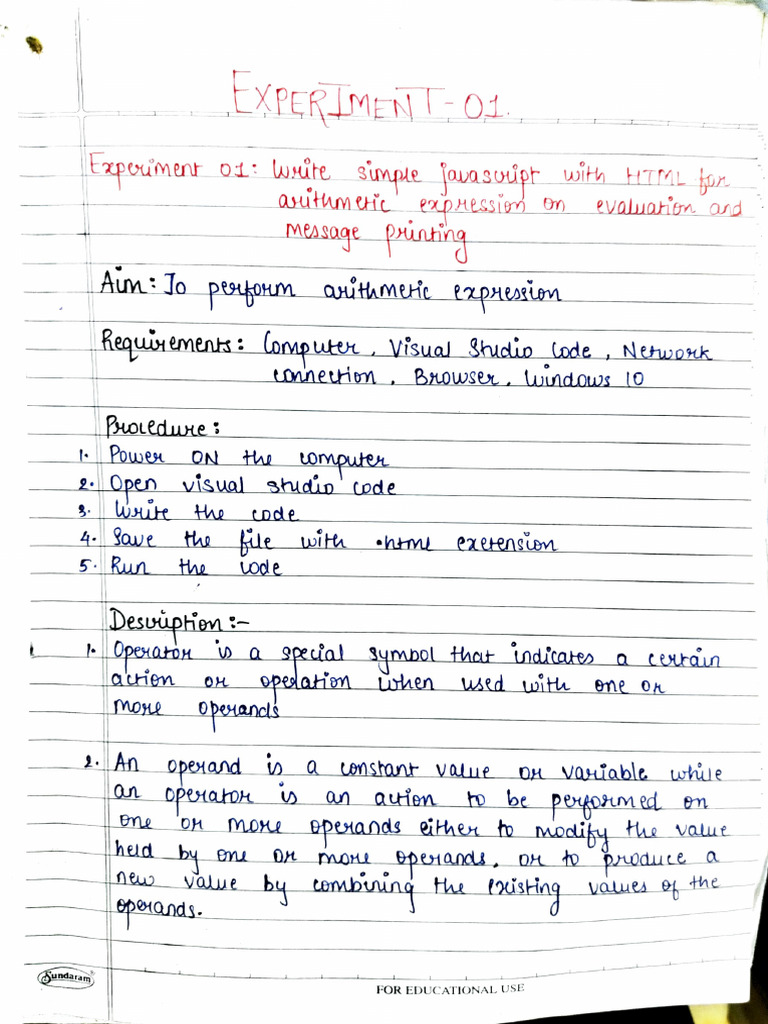 EXPERIMENT-01.
Experiment 01: Write simple javascript with HTML for
arithmetic expression on evaluation and
message printing
Aim: To perform arithmetic expression
Requirements: Computer, Visual Studio Code, Network
connection, Browser, Windows 10
Procedure:
1. Power ON the computer
2. Open visual studio code
3. Write the code
4. Save the file with .html extension
5. Run the code
Description:-
1. Operator is a special symbol that indicates a certain
action or operation when used with one or
more operands
2. An operand is a constant value or variable while
an operator is an action to be performed on
one or more operands either to modify the value
held by one or more operands, or to produce a
new value by combining the existing values of the
operands.
Sundaram®
FOR EDUCATIONAL USE